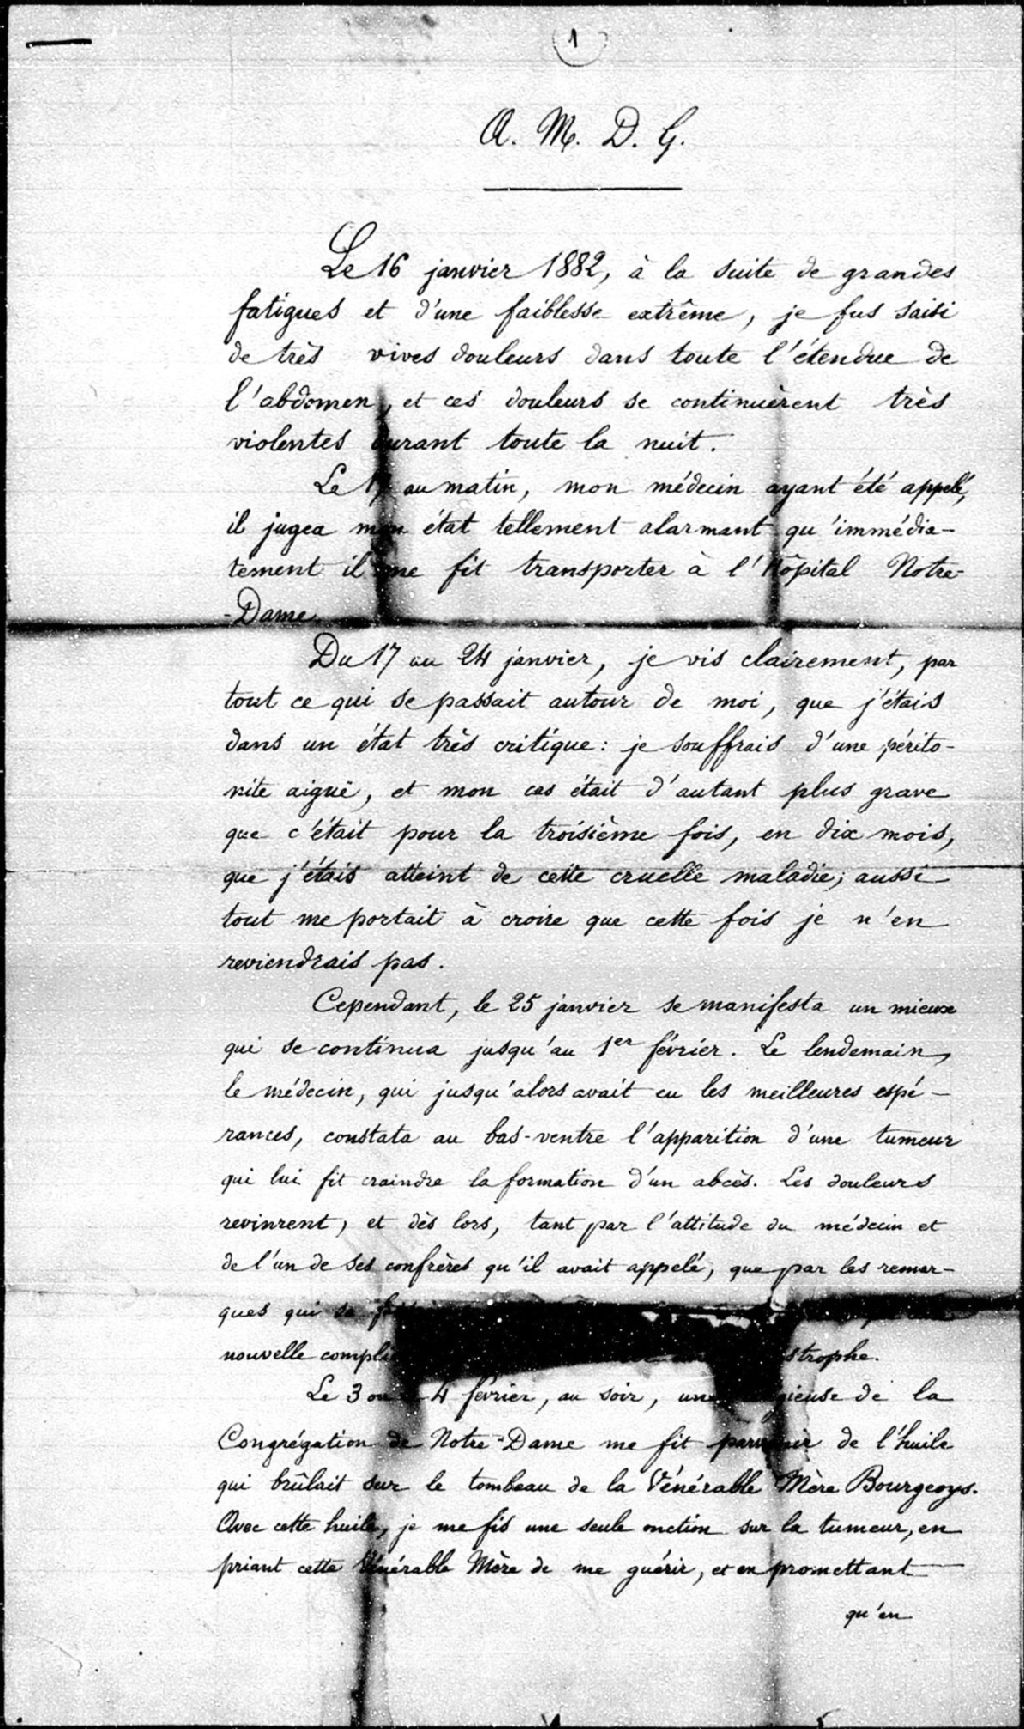 1
A. M. D. G.
Le 16 janvier 1882, à la suite de grandes
fatigues et d'une faiblesse extrême, je fus saisi
de très vives douleurs dans toute l'étendue de
l'abdomen, et ces douleurs se continuèrent très
violentes durant toute la nuit.
Le 17 au matin, mon médecin ayant été appelé,
il jugea mon état tellement alarmant qu'immédia-
tement il me fit transporter à l'Hôpital Notre-
-Dame.
Du 17 au 24 janvier, je vis clairement, par
tout ce qui se passait autour de moi, que j'étais
dans un état très critique: je souffrais d'une périto-
nite aiguë, et mon cas était d'autant plus grave
que c'était pour la troisième fois, en dix mois,
que j'étais atteint de cette cruelle maladie; aussi
tout me portait à croire que cette fois je n'en
reviendrais pas.
Cependant, le 25 janvier se manifesta un mieux
qui se continua jusqu'au 1er février. Le lendemain,
le médecin, qui jusqu'alors avait eu les meilleures espé-
rances, constata au bas-ventre l'apparition d'une tumeur
qui lui fit craindre la formation d'un abcès. Les douleurs
revinrent, et dès lors, tant par l'attitude du médecin et
de l'un de ses confrères qu'il avait appelé, que par les remar-
ques qui se
nouvelle
Le 3 ou le 4 février, au soir, une religieuse de la
Congrégation de Notre-Dame me fit parvenir de l'huile
qui brûlait sur le tombeau de la Vénérable Mère Bourgeoys.
Avec cette huile, je me fis une seule onction sur la tumeur, en
priant cette Vénérable Mère de me guérir, et en promettant
qu'en